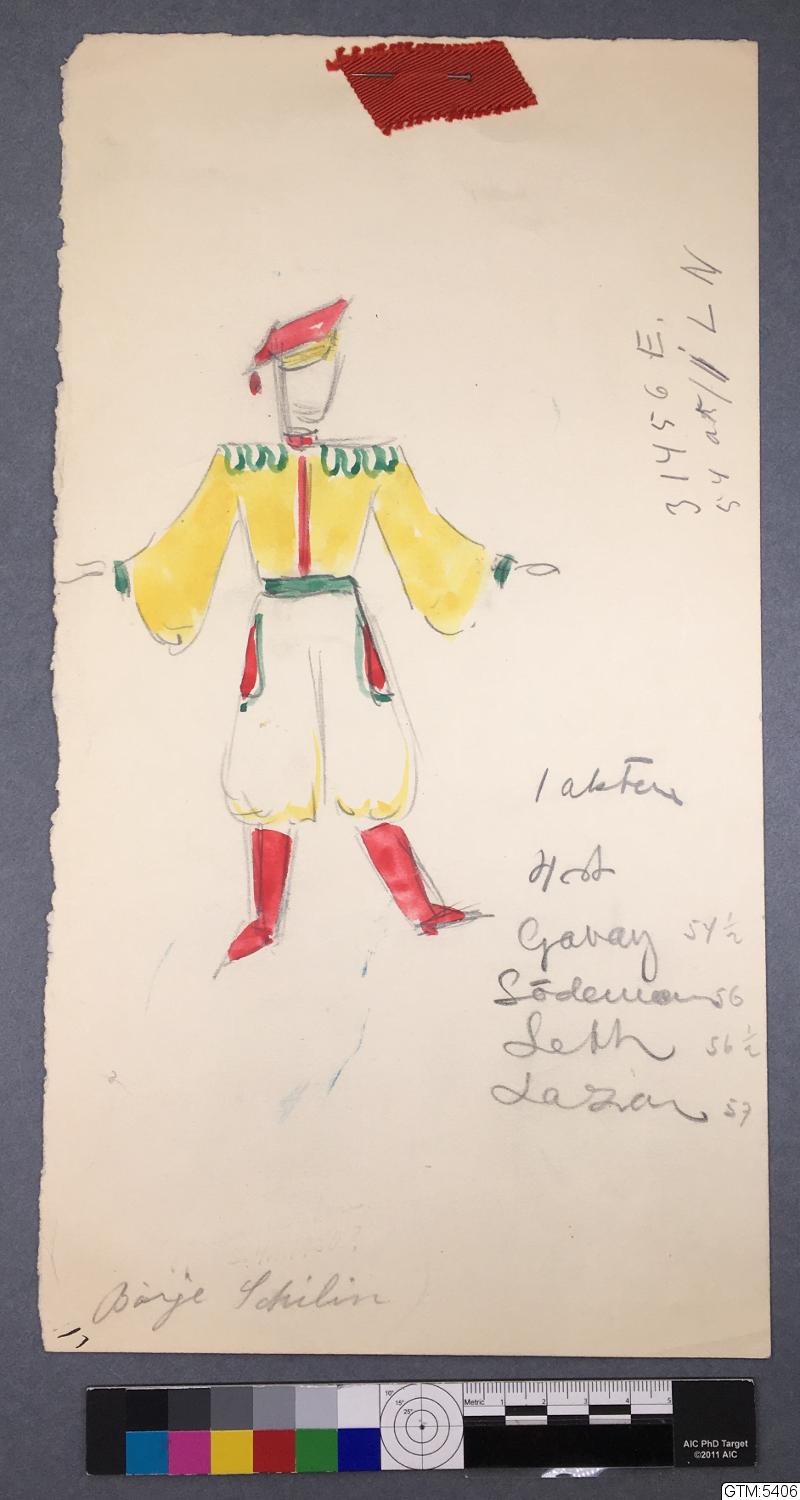 31456 E.
54 at/ L N
1 akten
4 st
Gavay 54 ½
Södeman 56
Leth 56 ½
Lazar 57
Börje Schilin
10°
15°
25°
Metric 1 2 3 4 5
AIC PhD Target
©2011 AIC
GTM:5406